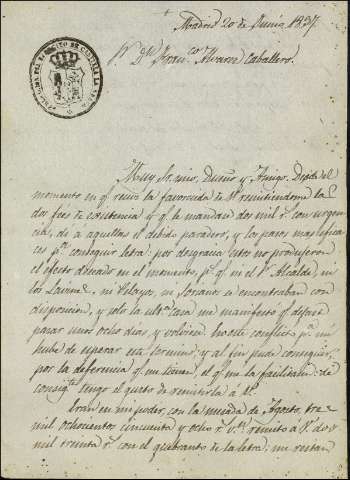 Madrid 20 de Junio 1837.
Sr. Dn. Franco. Alvarez Caballero.
Muy Sr. mio, Dueño y Amigo. Desde el
momento en qe. recivi la favorecida de V. remitiendome las
dos fees de existencia y qe. le mandara dos mil rs. con urgen-
cia, di a aquellas el debido paradero, y los pasos mas efica-
ces pa. conseguir letra: por desgracia estos no produjeron
el efecto deseado en el momento, ps. qe. ni el Sr. Alcalde, ni
los ni Pelayos, ni Soranos se encontraban con
disposicion, y solo la ultima casa me manifesto qe. dejase
pasar unos ocho dias, y volviera. En este conflicto pr. mi
hube de esperar este termino; y al fin pude conseguir,
por la deferencia qe. me tienen, el qe. me la facilitaran: de
consigte. tengo el gusto de remitirla á V.
Eran en mi poder, con la mesada de Agosto, tres
mil ochocientos cincuenta y ocho rs. remito á V. dos
mil treinta rs. con el quebranto de la letra: me restan